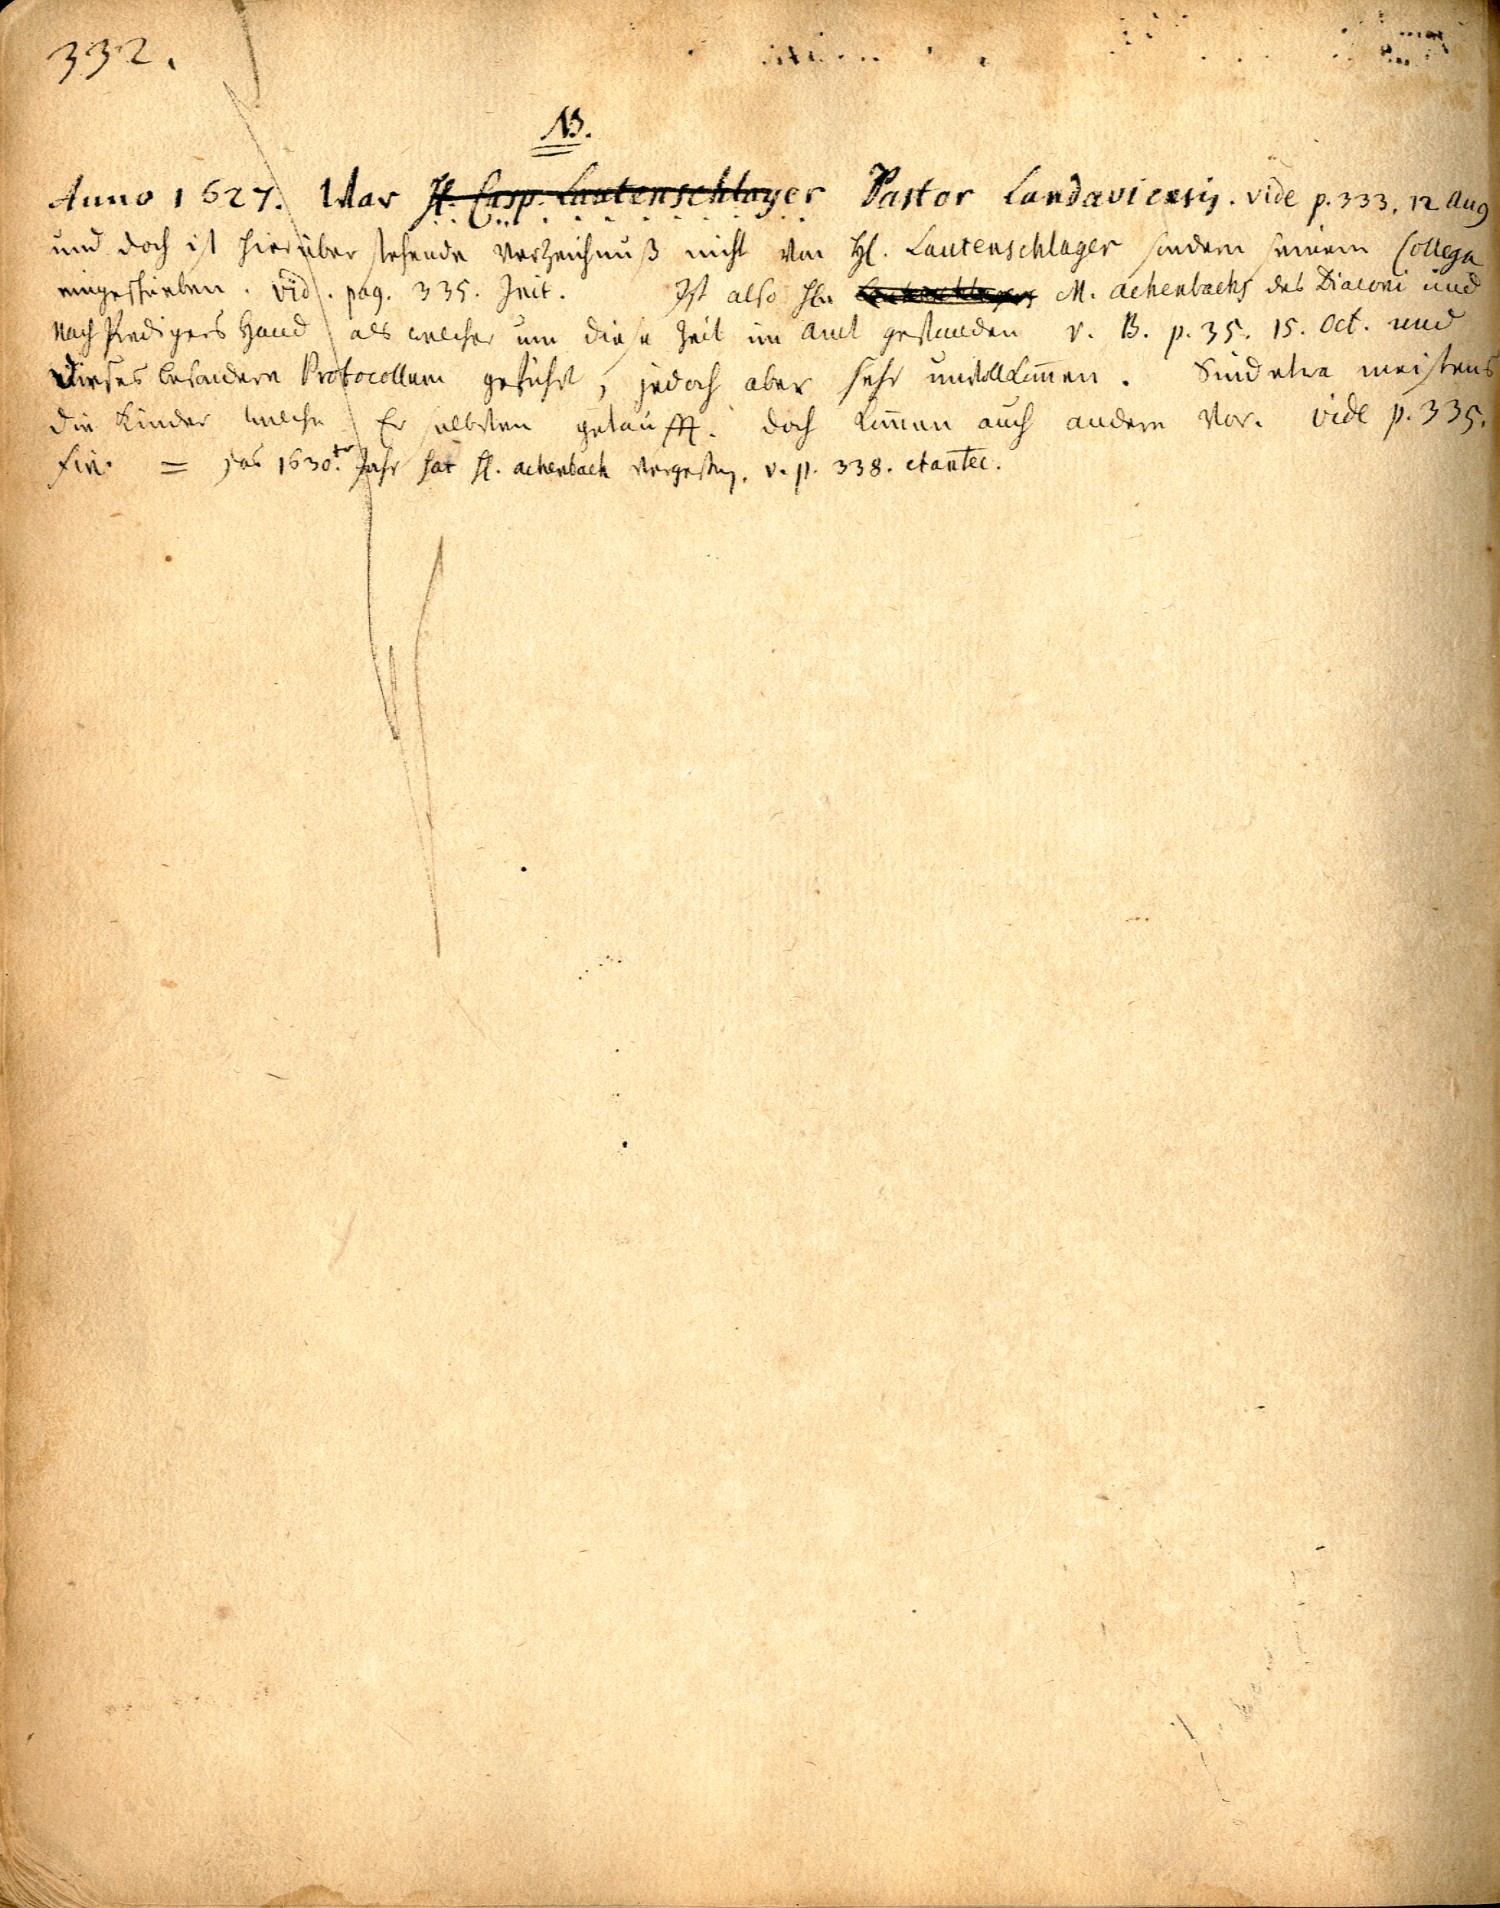 332.
NB.
Anno 1627. War H. Casp. Lautenschlager Pastor Landaviensis. vide p. 333. 12 Aug
und doch ist hierüber stehende Verzeichnuß nicht von H. Lautenschlager sondern seinem Collega
eingeschrieben. vid. pag. 335. Init. Ist also Hn Lautenschlagers M. Achenbachs des Diaconi und
Nach Predigers Hand als welcher um diese Zeit im Amt gestanden v. B. p. 35. 15. Oct. und
Dieses besondere Protocollum geführt, jedoch aber sehr unvollkom̄en. Sind etwa meistens
die Kinder welche Er selbsten getaufft. doch kom̄en auch andere vor. vide p. 335.
fin. = das 1630.te Jahr hat H. Achenbach vergessen, v. p. 338. et antec.